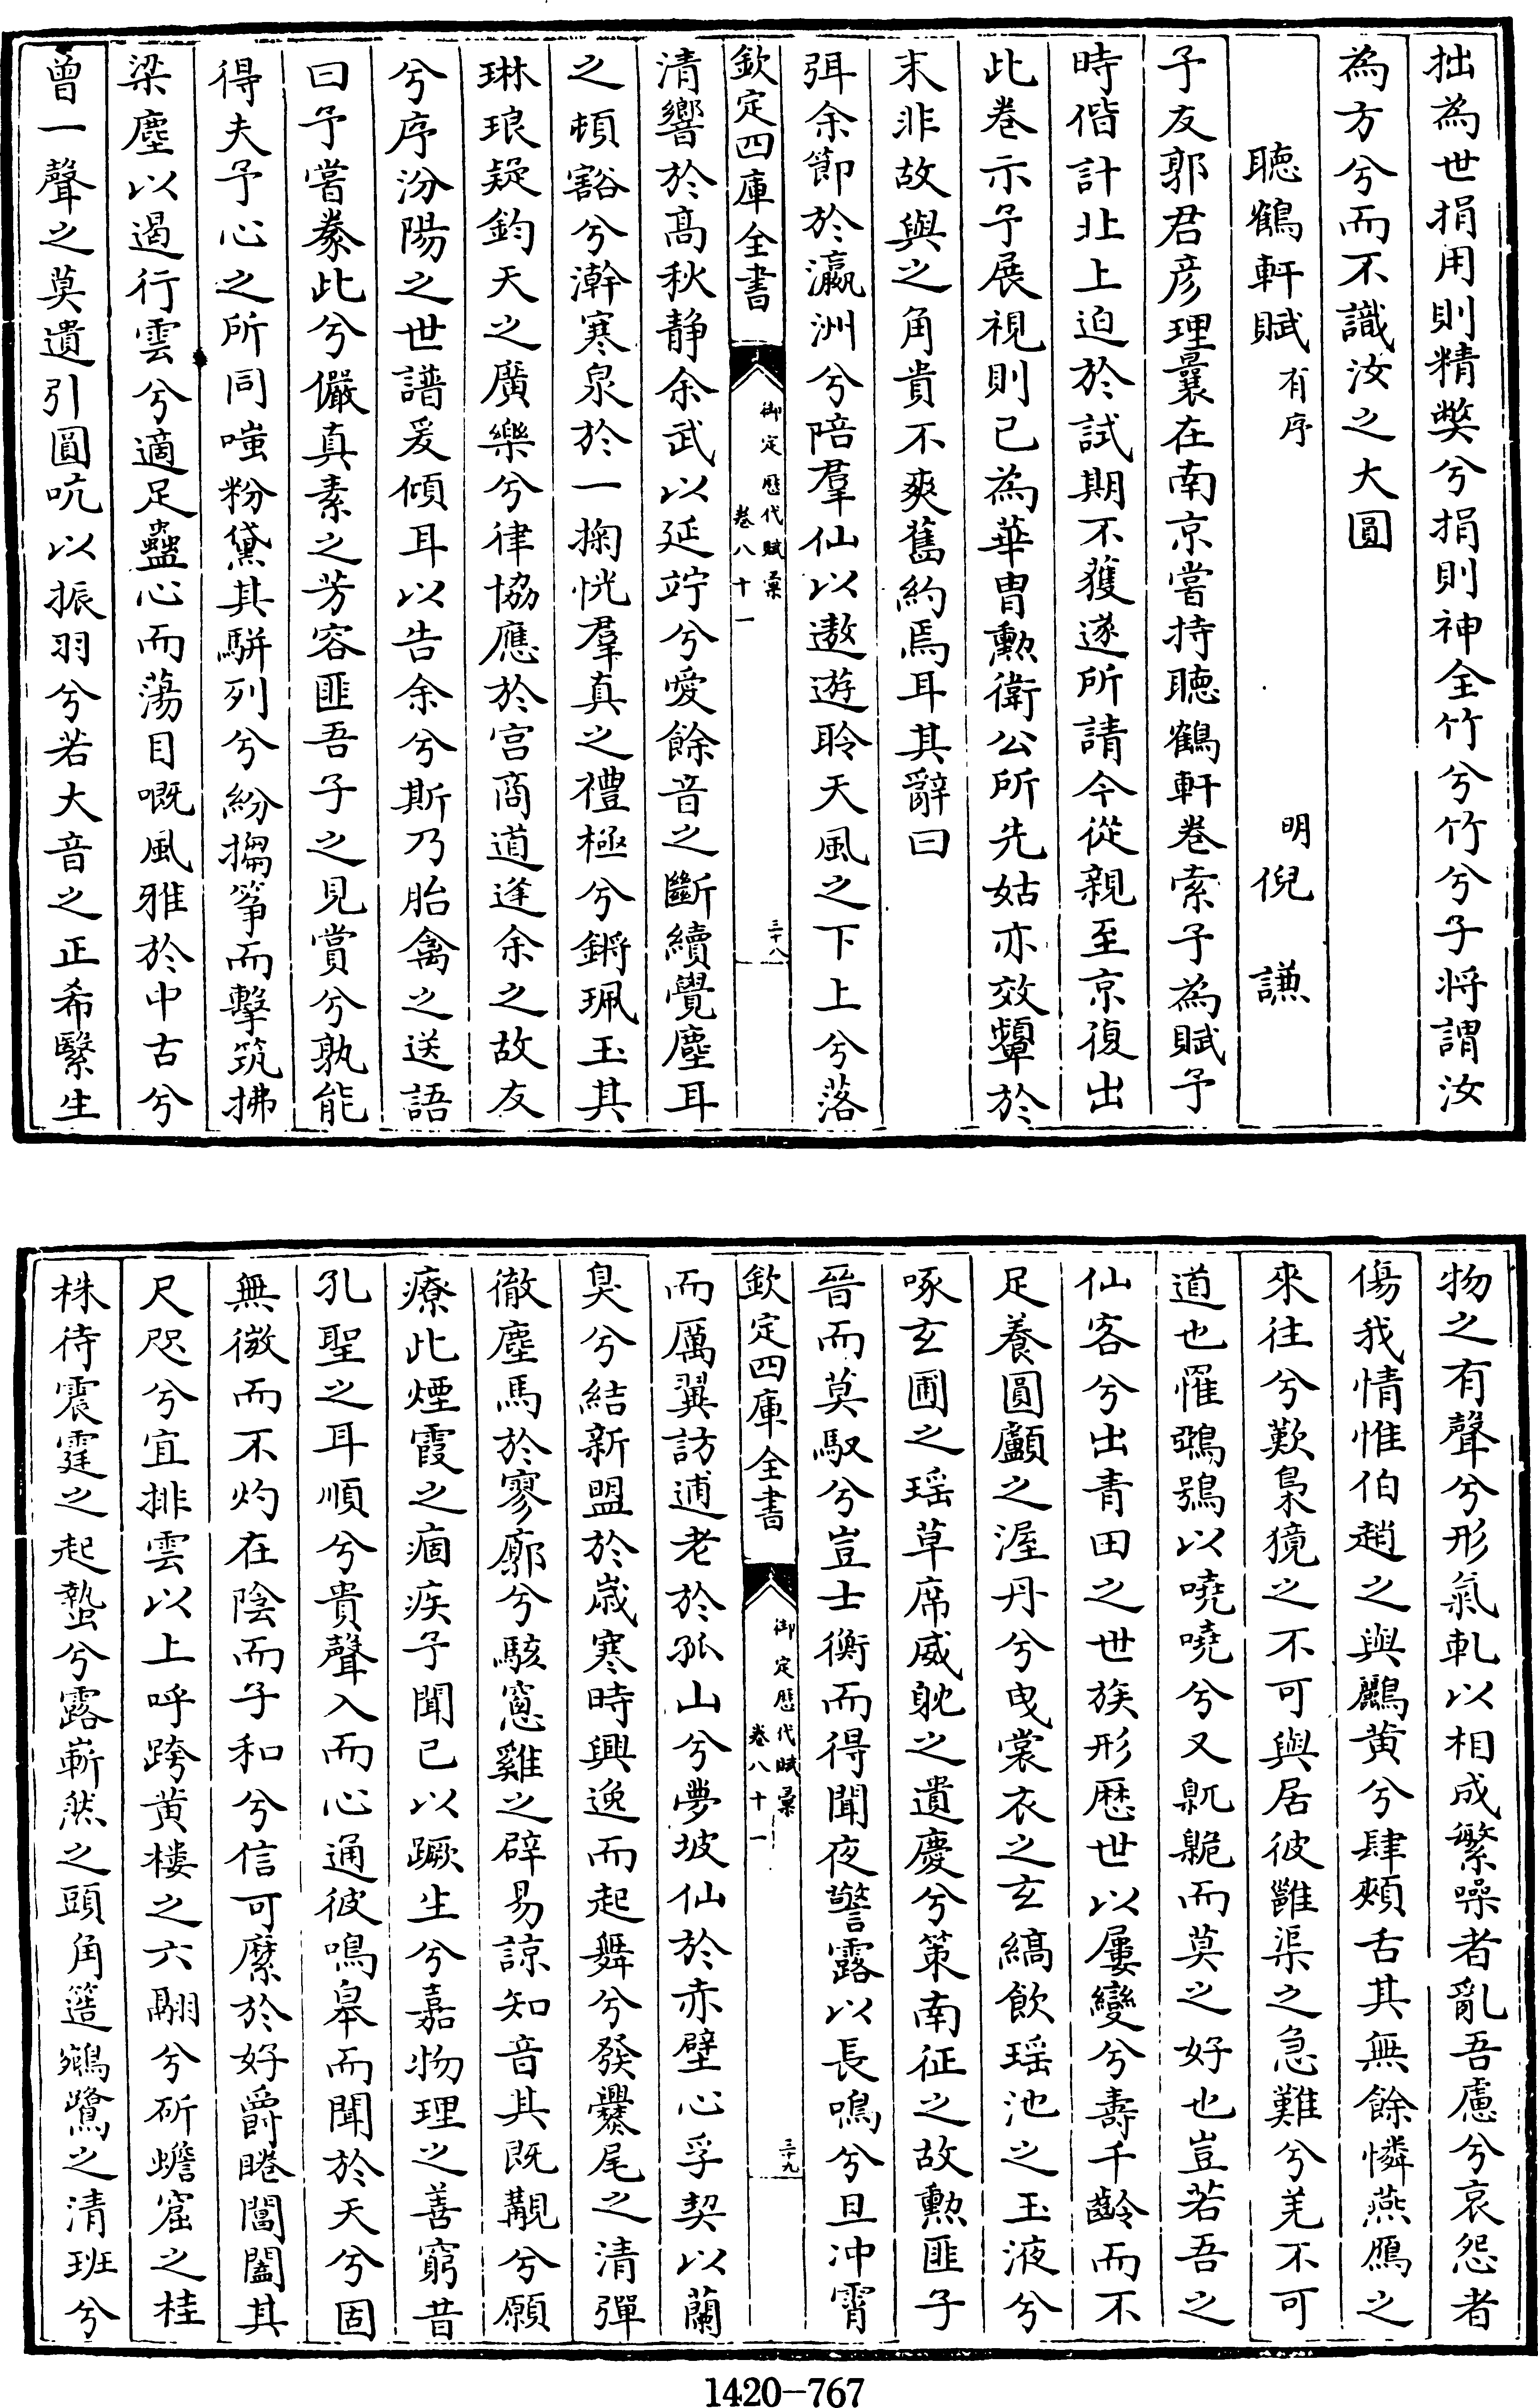 拙為世捐用則精獘兮捐則神全竹兮竹兮子将謂汝
為方兮而不識汝之大圓
聴鶴軒賦有序 明倪謙
予友郭君彦理曩在南京嘗持聴鶴軒巻索予為賦予
時偕計北上迫於試期不獲遂所請今從親至京復出
此巻示予展視則已為華胄勲衛公所先姑亦效顰於
末非故與之角貴不爽舊約焉耳其辭曰
弭余節於瀛洲兮陪羣仙以遨遊聆天風之下上兮落
欽定四庫全書 御定歴代賦彚 巻八十一 三十八
清響於高秋静余武以延竚兮愛餘音之斷續覺塵耳
之頓豁兮瀚寒泉於一掬恍羣真之禮極兮鏘珮玉其
琳琅疑鈞天之廣樂兮律協應於宫商道逢余之故友
兮序汾陽之世譜爰傾耳以告余兮斯乃胎禽之送語
曰予嘗豢此兮儼真素之芳容匪吾子之見賞兮孰能
得夫予心之所同嗤粉黛其駢列兮紛搊筝而擊筑拂
梁塵以遏行雲兮適足蠱心而蕩目嘅風雅於中古兮
曾一聲之莫遺引圓吭以振羽兮若大音之正希繄生
物之有聲兮形氣軋以相成繁噪者亂吾慮兮哀怨者
傷我情惟伯趙之與鸝黄兮肆頰舌其無餘憐燕鴈之
來往兮歎梟獍之不可與居彼雝渠之急難兮羌不可
道也罹鵶鴞以嘵嘵兮又臲卼而莫之好也豈若吾之
仙客兮出青田之世族形歴世以屢變兮壽千齡而不
足養圓顱之渥丹兮曳裳衣之玄縞飲瑶池之玉液兮
啄玄圃之瑶草席威躭之遺慶兮策南征之故勲匪子
晉而莫馭兮豈士衡而得聞夜警露以長鳴兮旦冲霄
欽定四庫全書 御定歴代賦彚 巻八十一 三十九
而厲翼訪逋老於孤山兮夢坡仙於赤壁心孚契以蘭
臭兮結新盟於歳寒時興逸而起舞兮發爨尾之清彈
徹塵馬於寥廓兮駭窻雞之辟易諒知音其既覯兮願
療此煙霞之痼疾予聞已以蹶生兮嘉物理之善窮昔
孔聖之耳順兮貴聲入而心通彼鳴皋而聞於天兮固
無微而不灼在陰而子和兮信可縻於好爵睠閶闔其
尺咫兮宜排雲以上呼跨黄樓之六翮兮斫蟾窟之桂
株待震霆之起蟄兮露嶄然之頭角簉鵷鷺之清班兮
1420-767